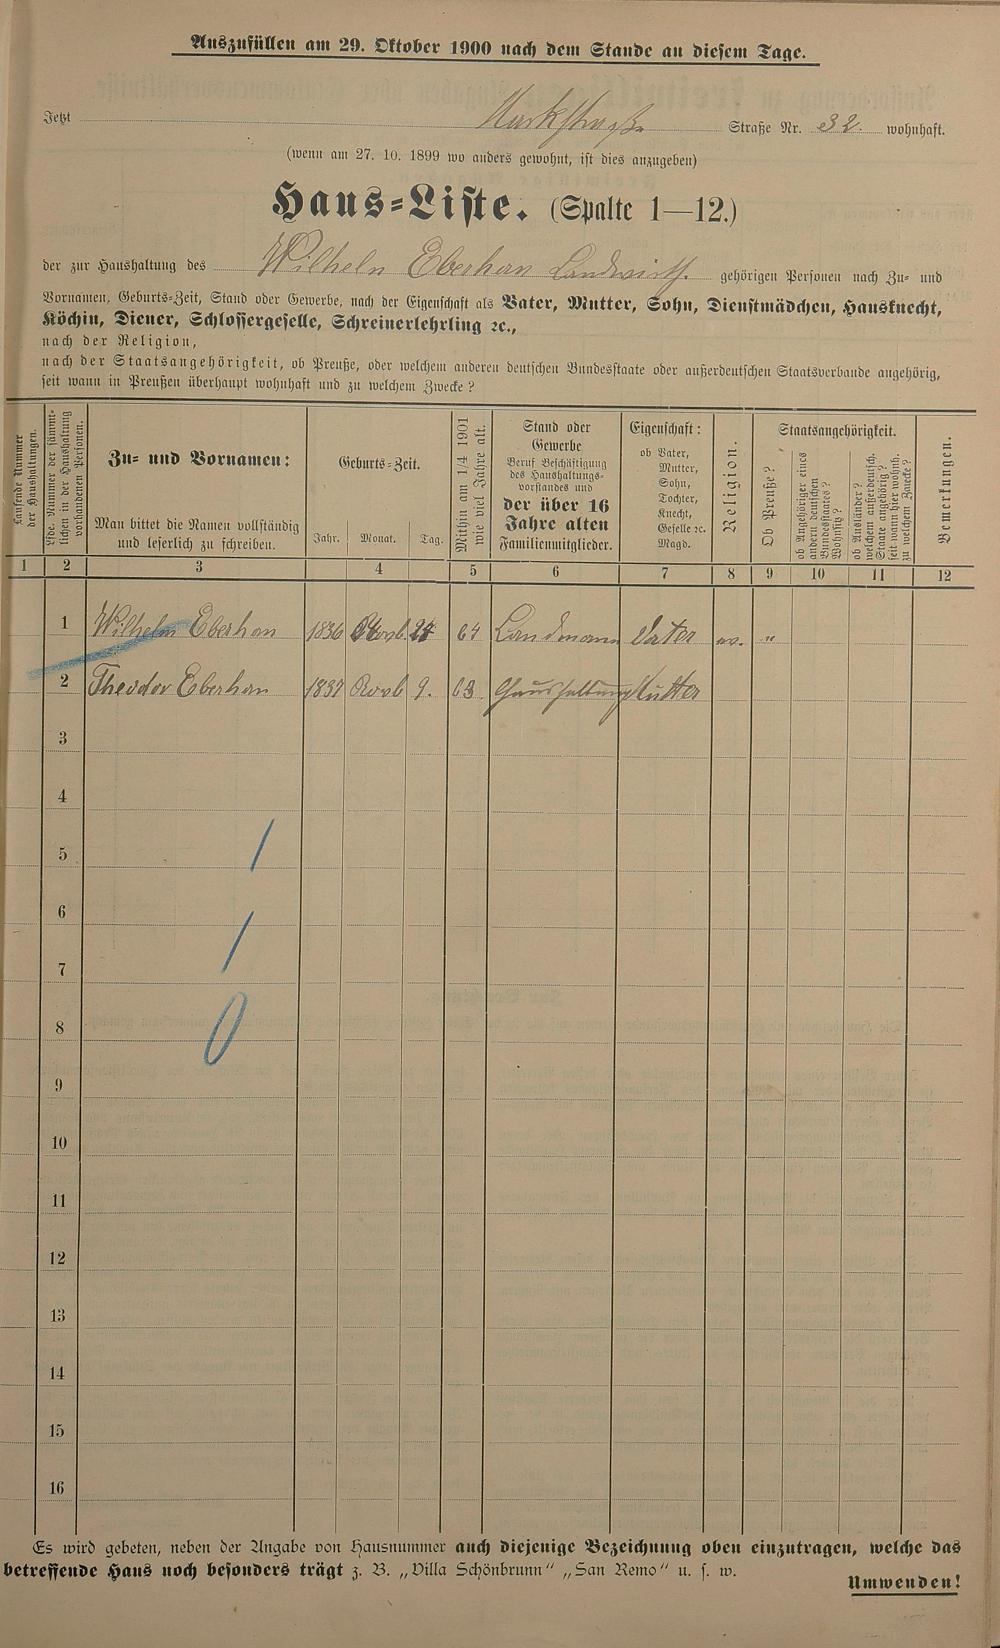 Auszufüllen am 29. Oktober 1900 nach dem Stande an diesem Tage.
Jetzt Markstraße Straße Nr. 32. wohnhaft.
(wenn am 27. 10. 1899 wo anders gewohnt, ist dies anzugeben)
Haus-Liste. (Spalte 1—12.)
der zur Haushaltung des Wilheln Eberhan Landwirth. gehörigen Personen nach Zu- und
Vornamen, Geburts-Zeit, Stand oder Gewerbe, nach der Eigenschaft als Vater, Mutter, Sohn, Dienstmädchen, Hausknecht,
Köchin, Diener, Schlossergeselle, Schreinerlehrling ꝛc.,
nach der Religion,
nach der Staatsangehörigkeit, ob Preuße, oder welchem anderen deutschen Bundesstaate oder außerdeutschen Staatsverbande angehörig,
seit wann in Preußen überhaupt wohnhaft und zu welchem Zwecke?
Laufende Nummer
der Haushaltungen.
Lfde. Nummer der sämmt-
lichen in der Haushaltung
vorhandenen Personen.
Zu- und Vornamen:
Man bittet die Namen vollständig
und leserlich zu schreiben.
Geburts-Zeit.
Jahr. Monat. Tag.
Mithin am 1/4 1901
wie viel Jahre alt.
Stand oder
Gewerbe
Beruf Beschäftigung
des Haushaltungs-
vorstandes und
der über 16
Jahre alten
Familienmitglieder.
Eigenschaft:
ob Vater,
Mutter,
Sohn,
Tochter,
Knecht,
Geselle ꝛc.
Magd.
Religion.
Staatsangehörigkeit.
Ob Preuße?
ob Angehöriger eines
andern deutschen
Bundesstaates?
Wohnsitz?
ob Ausländer?
welchem außerdeutsch.
Staate angehörig?
seit wann hier wohnh.
zu welchem Zwecke?
Bemerkungen.
1 2 3 4 5 6 7 8 9 10 11 12
1 Wilhelm Eberhan 1836 24 64 Landmann Vater ev. "
2 Theodor Eberhan 1837 Novb 9. 63. Haushaltung Mutter
3
4
5
6
7
8
9
10
11
12
13
14
15
16
Es wird gebeten, neben der Angabe von Hausnummer auch diejenige Bezeichnung oben einzutragen, welche das
betreffende Haus noch besonders trägt z. B. „Villa Schönbrunn" „San Remo" u. s. w.
Umwenden!